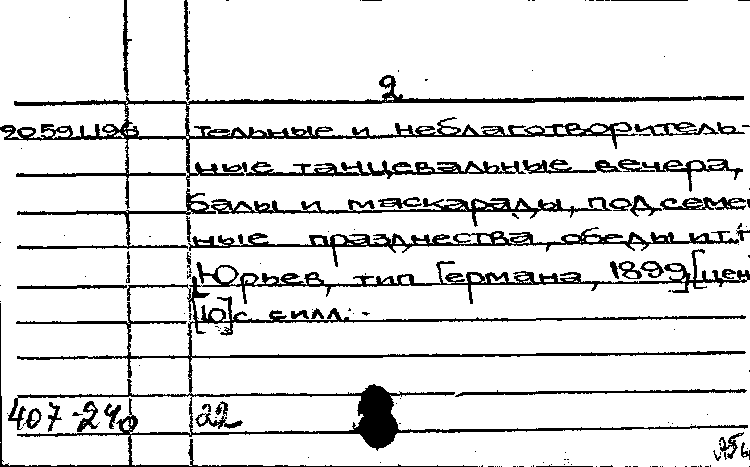 2
тельные и неблаготворитель-
ные танцевальные вечера,
балы и маскарады, под семей
ные празднества, обеды и т.п
Юрьев, тип Германа, 1899 [цен
[10] с. с илл.
407-240 22